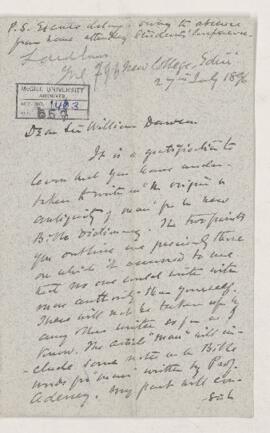 P.S. Excuse delay: owing to absence
from home attending Students' Conference.
New College, Edin
27th July 1896
McGILL UNIVERSITY
ARCHIVES
ACC. NO. 1493
Dear Sir William Dawson
It is a gratification to
learn that you have under-
taken to write on the origin &
antiquity of man for the new
Bible Dictionary. The two points
you outline are precisely those
on which it occurred to me
that no one could write with
more authority than yourself.
These will not be taken up by
any other writer so far as I
know. The article "man" will in-
clude some notes on the Bible
words for "man" written by Prof.
Adeney. My part will con-
sist